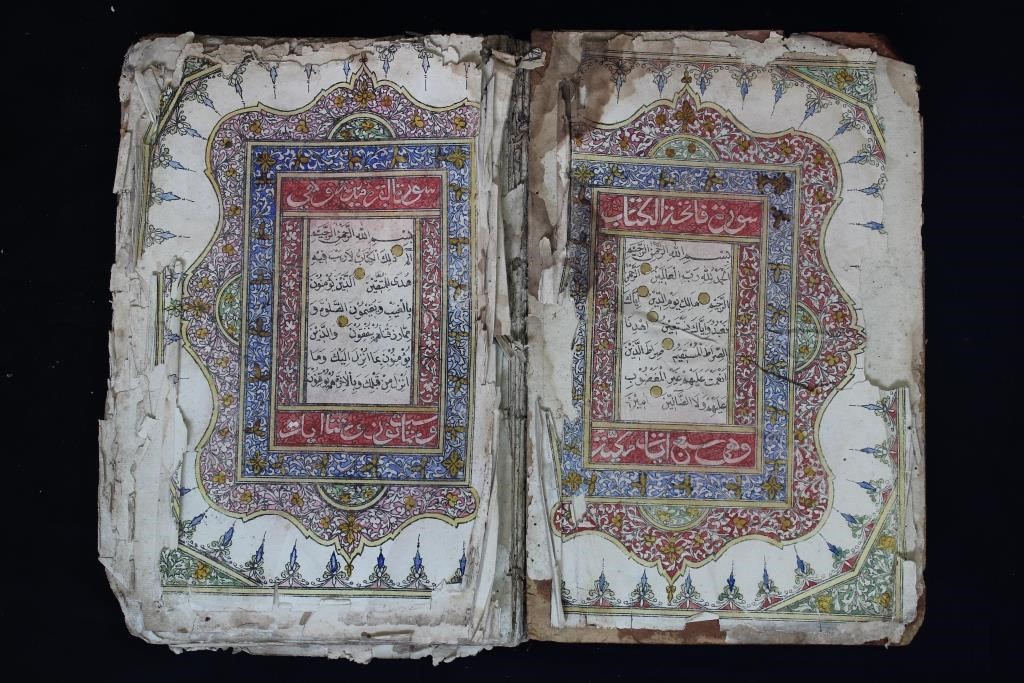 سورة فاتحة الكتاب
بسم الله الرحمن الرحيم
الحمد لله رب العالمين الرحمن
الرحيم مالك يوم الدين إياك
نعبد وإياك نستعين اهدنا
الصراط المستقيم صراط الذين
أنعمت عليهم غير المغضوب
عليهم ولا الضالين
وهي سبع آيات
سورة البقرة مدنية وهي
بسم الله الرحمن الرحيم
الم ذلك الكتاب لا ريب فيه
هدى للمتقين الذين يؤمنون
بالغيب ويقيمون الصلوة و
مما رزقناهم ينفقون والذين
يؤمنون بما أنزل إليك وما
أنزل من قبلك وبالآخرة هم يوقنون
مائتان وثمانون آيات